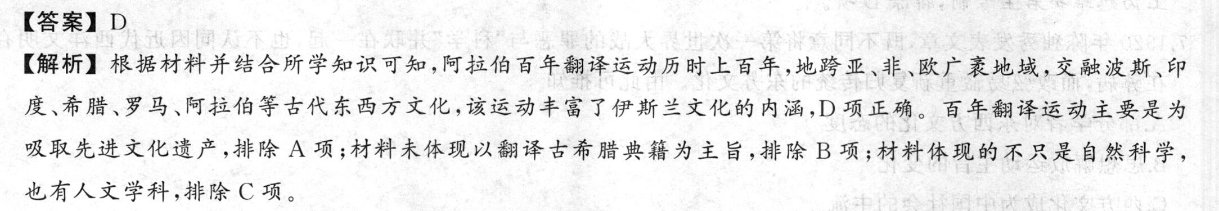 【答案】D
【解析】根据材料并结合所学知识可知,阿拉伯百年翻译运动历时上百年,地跨亚、非、欧广袤地域,交融波斯、印
度、希腊、罗马、阿拉伯等古代东西方文化,该运动丰富了伊斯兰文化的内涵,D 项正确。百年翻译运动主要是为
吸取先进文化遗产,排除 A 项;材料未体现以翻译古希腊典籍为主旨,排除 B 项;材料体现的不只是自然科学,
也有人文学科,排除 C 项。